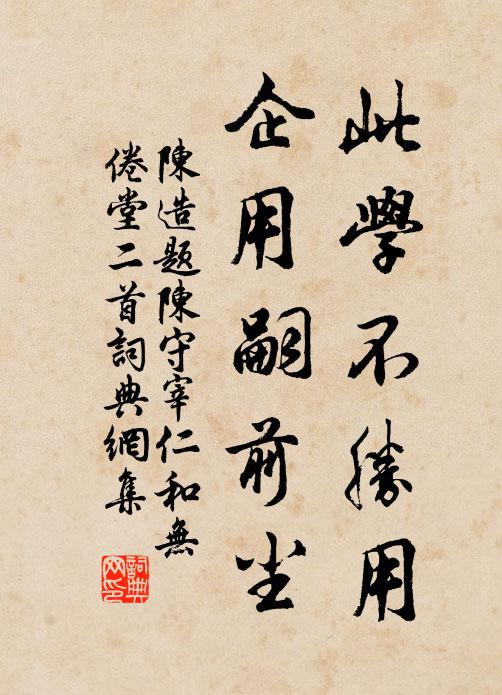 此學不勝用
企用嗣前尘
陳造題陳守宰仁和無
倦堂二首詞典網集
詞典
网印